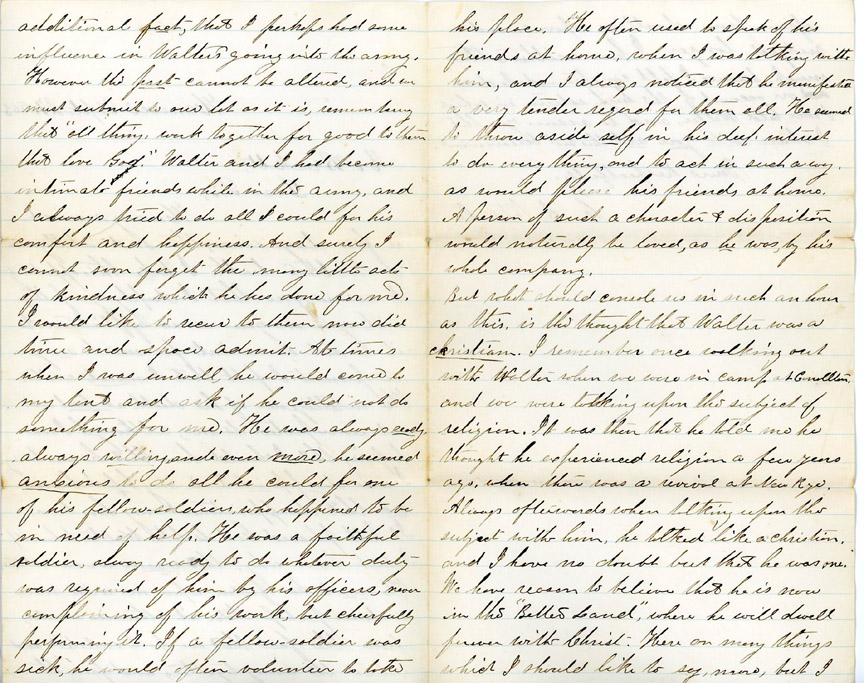 additional fact, that I perhaps had some
influence in Walter's going into the army.
However the past cannot be altered, and we
must submit to our lot as it is, remembering
that "all things work together for good to them
that love God." Walter and I had become
intimate friends while in the army, and
I always tried to do all I could for his
comfort and happiness. And surely I
cannot soon forget the many little acts
of kindness which he has done for me.
I would like to recur to them now did
time and space admit. At times
when I was unwell, he would come to
my tent and ask if he could not do
something for me. He was always ready
always willing and even more, he seemed
anxious to do all he could for one
of his fellow-soldiers, who happened to be
in need of help. He was a faithful
soldier, alway ready to do whatever duty
was required of him by his officers, never
complaining of his work, but cheerfully
performing it. If a fellow-soldier was
sick, he would often volunteer to take
his place. He often used to speak of his
friends at home, when I was talking with
him, and I always noticed that he manifested
a very tender regard for them all. He seemed
to throw aside self in his deep interest
to do everything, and to act in such a way,
as would please his friends at home.
A person of such a character & disposition
would naturally be loved, as he was, by his
whole company.
But what should console us in such an hour
as this, is the thought that Walter was a
christian. I remember once walking out
with Walter when we were in camp at
and we were talking upon the subject of
religion. It was then that he told me he
thought he experienced religion a few years
ago, when there was a revival at New
Always afterwards when talking upon the
subject with him, he talked like a christian,
and I have no doubt but that he was one.
We have reason to believe that he is now
in the "Better Land", where he will dwell
forever with Christ. There are many things
which I should like to say, more, but I